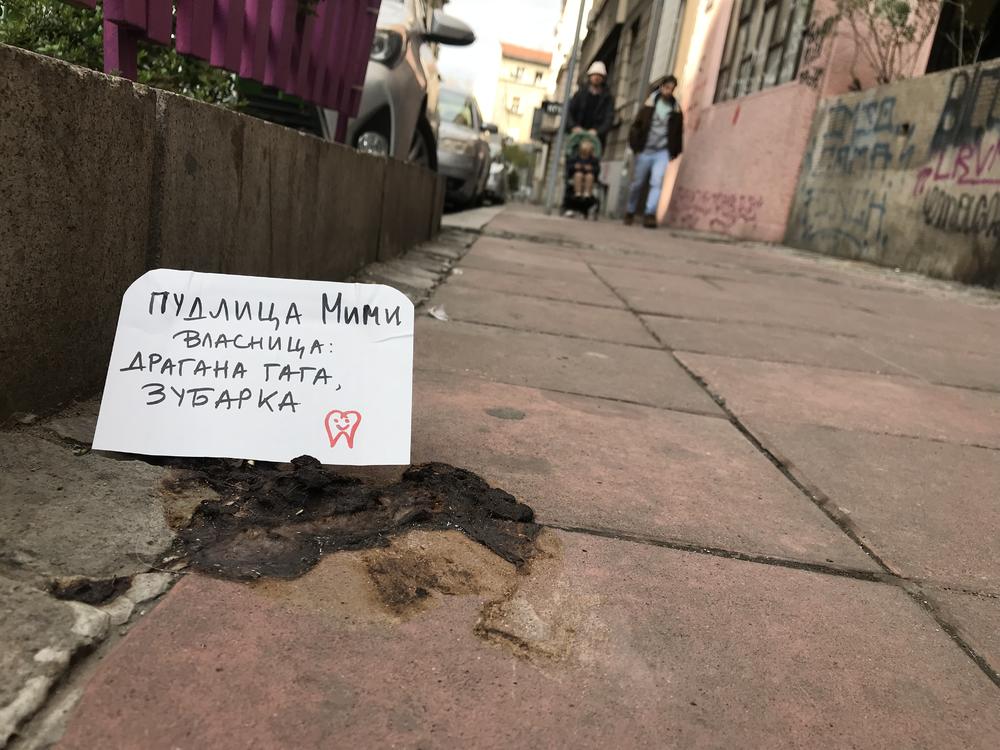 ПУДЛИЦА Мими
ВЛАСНИЦА:
ДРАГАНА ГАГА,
ЗУБАРКА